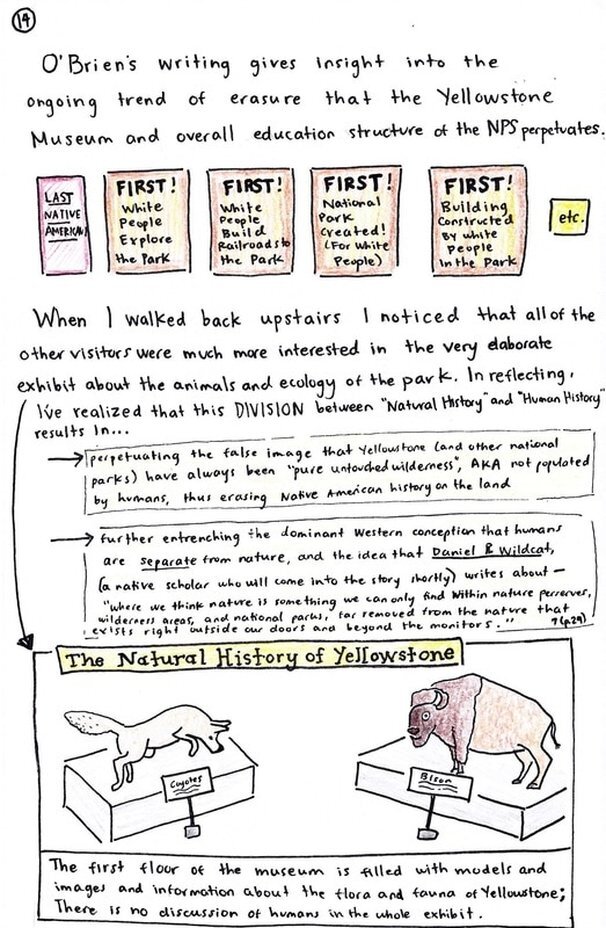 14
O'Brien's writing gives insight into the
ongoing trend of erasure that the Yellowstone
Museum and overall education structure of the NPS perpetuates.
LAST
NATIVE
AMERICAN!
FIRST!
White
People
Explore
the Park
FIRST!
White
People
Build
Railroads to
the Park
FIRST!
National
Park
Created!
(For White
People)
FIRST!
Building
Constructed
By white
people
In the Park
etc.
When I walked back upstairs I noticed that all of the
other visitors were much more interested in the very elaborate
exhibit about the animals and ecology of the park. In reflecting,
I've realized that this DIVISION between "Natural History" and "Human History"
results in...
perpetuating the false image that Yellowstone (and other national
parks) have always been "pure untouched wilderness", AKA not populated
by humans, thus erasing Native American history on the land
further entrenching the dominant Western conception that humans
are separate from nature, and the idea that Daniel R Wildcat,
(a native scholar who will come into the story shortly) writes about—
"where we think nature is something we can only find within nature perserves,
wilderness areas, and national parks, far removed from the nature that
exists right outside our doors and beyond the monitors." 7 (p.29)
The Natural History of Yellowstone
Coyotes
Bison
The first floor of the museum is filled with models and
images and information about the flora and fauna of Yellowstone;
There is no discussion of humans in the whole exhibit.